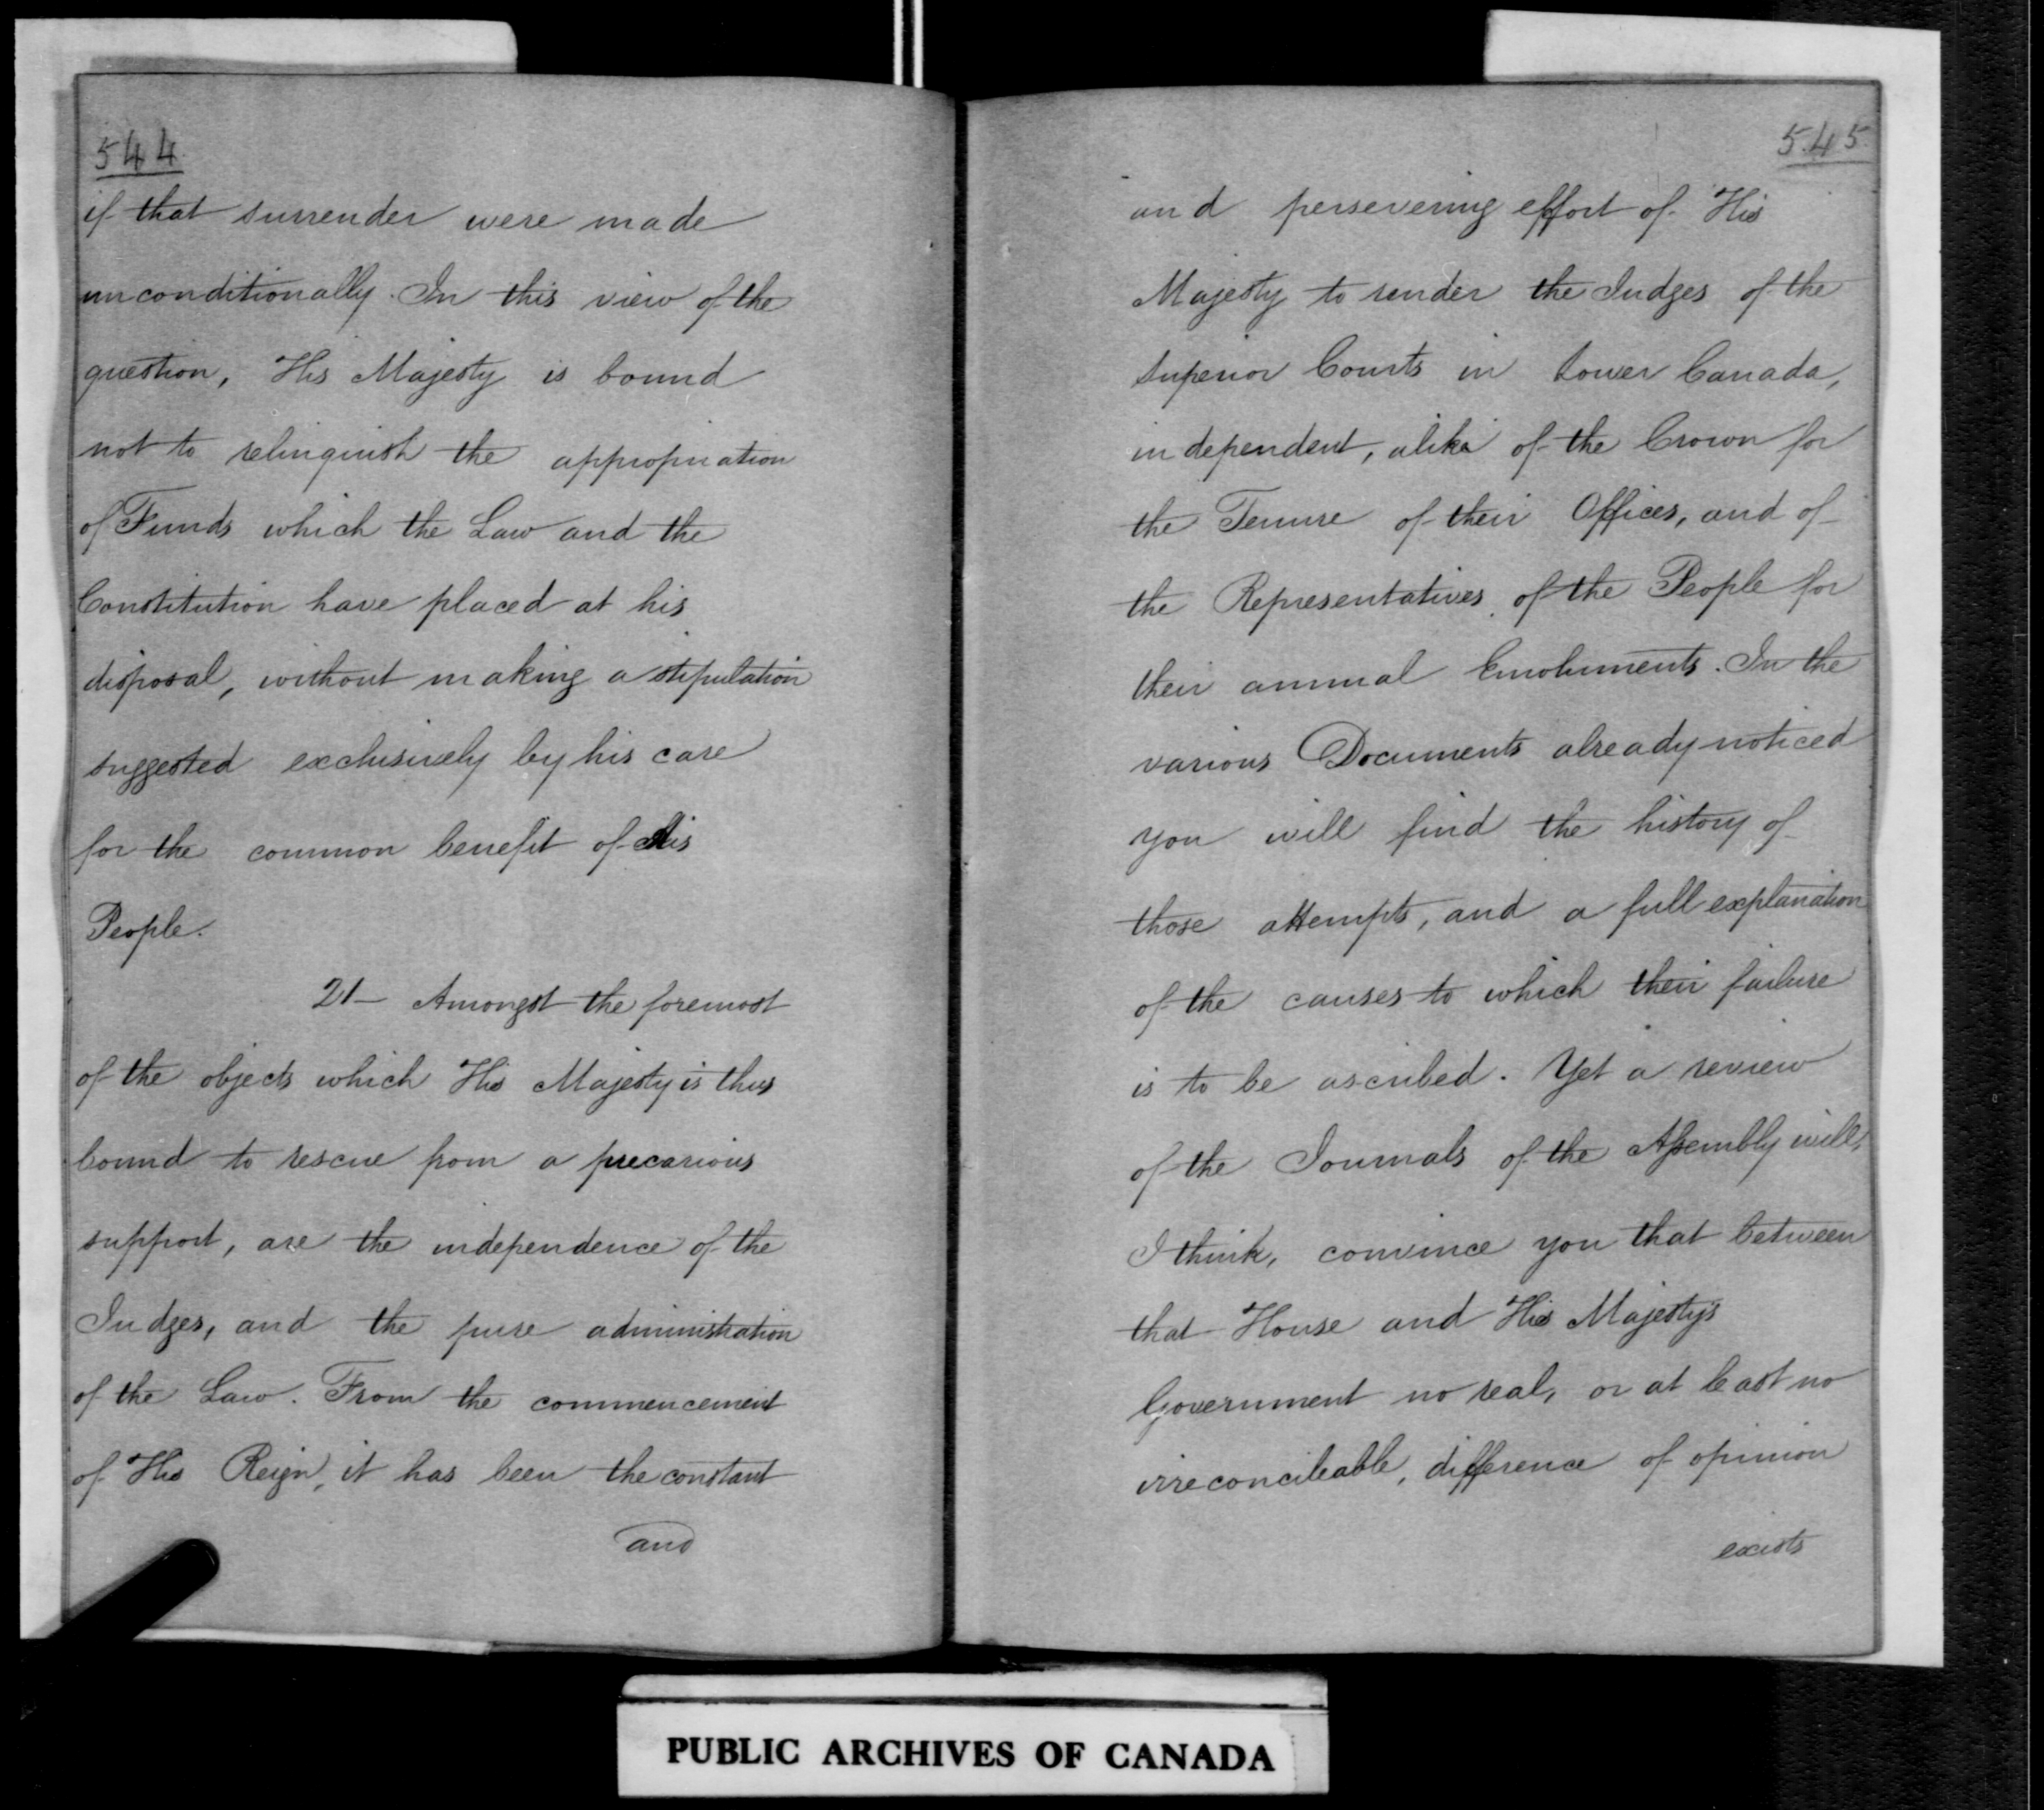 544
if that surrender were made
unconditionally. In this view of the
question, His Majesty is bound
not to relinquish the appropriation
of Funds which the Law and the
Constitution have placed at his
disposal, without making a stipulation
suggested exclusively by his care
for the common benefit of His
People.
21 — Amongst the foremost
of the objects which His Majesty is thus
bound to rescue from a precarious
support, are the independence of the
Judges, and the pure administration
of the Law. From the commencement
of His Reign, it has been the constant
and
545
and persevering effort of His
Majesty to render the Judges of the
Superior Courts in Lower Canada,
independent, alike of the Crown for
the Tenure of their Offices, and of
the Representatives of the People for
their annual Emoluments. In the
various Documents already noticed
you will find the history of
those attempts, and a full explanation
of the causes to which their failure
is to be ascribed. Yet a review
of the Journals of the Assembly will,
I think, convince you that between
that House and His Majesty's
Government no real, or at least no
irreconcileable, difference of opinion
exists
PUBLIC ARCHIVES OF CANADA